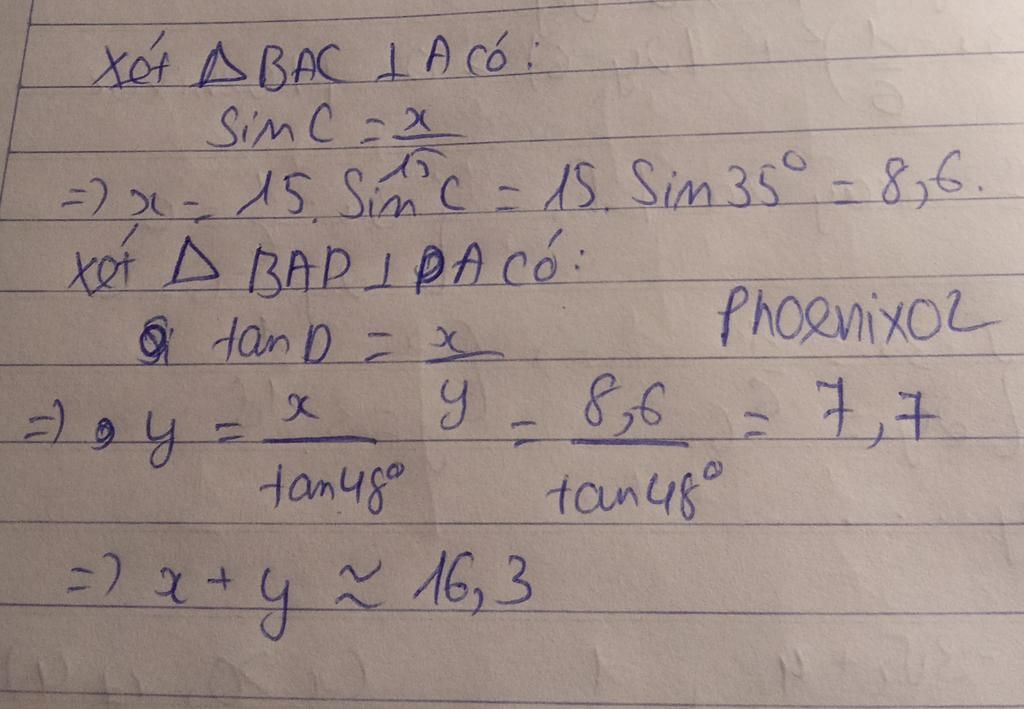 Xét Δ BAC ⊥ A có:
Sin C = x/15
=) x = 15. Sin C = 15. Sin 35° = 8,6.
Xét Δ BAD ⊥ A có:
tan D = x/y
Phoenix02
=) y = x/tan48° = 8,6/tan48° = 7,7
=) x + y ≈ 16,3